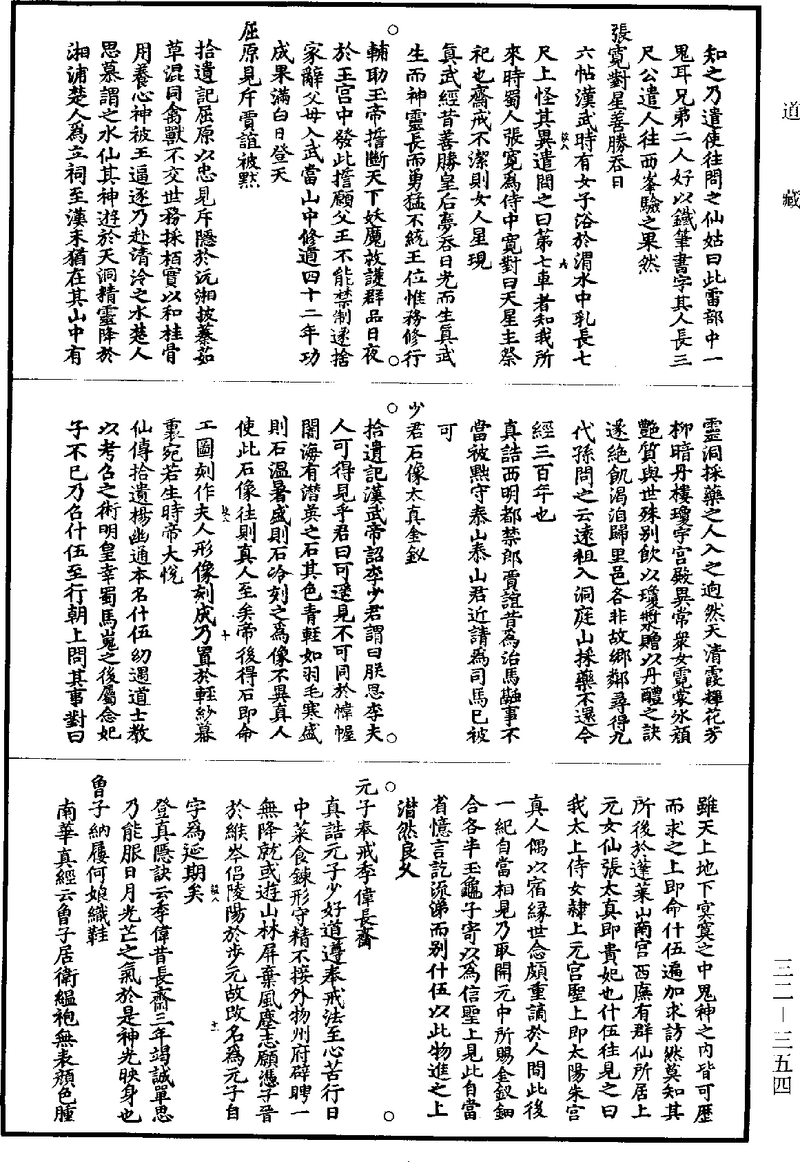 道藏
知之乃遣使往問之仙姑曰此雷部中一
鬼耳兄弟二人好以鐵筆書字其人長三
尺公遣人往西峯驗之果然
張寬對星善勝吞日
六帖漢武時有女子浴於渭水中乳長七
尺上怪其異遣問之曰第七車者知我所
來時蜀人張寬為侍中寬對曰天星主祭
祀也齋戒不潔則女人星現
真武經昔善勝皇后夢吞日光而生真武
生而神靈長而勇猛不統王位惟務修行
輔助玉帝誓斷天下妖魔救護群品日夜
於王宮中發此誓願父王不能禁制遂捨
家辭父母入武當山中修道四十二年功
成果滿白日登天
屈原見斥賈誼被黜
拾遺記屈原以忠見斥隱於沅湘披蓁茹
草混同禽獸不交世務採栢實以和桂膏
用養心神被王逼逐乃赴清泠之水楚人
思慕謂之水仙其神遊於天洞精靈降於
湘浦楚人為立祠至漢末猶在其山中有
靈洞採藥之人入之逈然天清霞輝花芳
柳暗丹樓瓊宇宮殿異常衆女霓裳氷顏
艷質與世殊別飲以瓊漿贈以丹醴之訣
遂絕飢渴洎歸里邑各非故鄉鄰尋得九
代孫問之云遠祖入洞庭山採藥不還今
經三百年也
真誥西明都禁郎賈誼昔為治馬融事不
當被黜守泰山泰山君近請為司馬已被
可
少君石像太真金釵
拾遺記漢武帝詔李少君謂曰朕思李夫
人可得見乎君曰可遥見不可同於幃幄
闇海有潛英之石其色青輕如羽毛寒盛
則石溫暑盛則石冷刻之為像不異真人
使此石像往則真人至矣帝後得石即命
工圖刻作夫人形像刻成乃置於輕紗幕
裏宛若生時帝大悅
仙傳拾遺楊幽通本名什伍幼遇道士教
以考召之術明皇幸蜀馬嵬之後屬念妃
子不已乃召什伍至行朝上問其事對曰
雖天上地下冥寞之中鬼神之內皆可歷
而求之上即命什伍遍加求訪然莫知其
所後於蓬萊山南宮西廡有群仙所居上
元女仙張太真即貴妃也什伍往見之曰
我太上侍女隸上元宮聖上即太陽朱宮
真人偶以宿緣世念頗重謫於人間此後
一紀自當相見乃取開元中所賜金釵鈿
合各半玉龜子寄以為信聖上見此自當
省憶言訖流涕而別什伍以此物進之上
潸然良久
元子奉戒李偉長齋
真誥元子少好道遵奉戒法至心苦行日
中菜食鍊形守精不接外物州府辟聘一
無降就或遊山林屏棄風塵志願憑子晉
於緱岑侣陵陽於步元故改名為元子自
字為延期矣
登真隱訣云李偉昔長齋三年竭誠單思
乃能服日月光芒之氣於是神光映身也
魯子納屨何娘織鞋
南華真經云魯子居衛縕袍無表顏色腫
三二—三五四